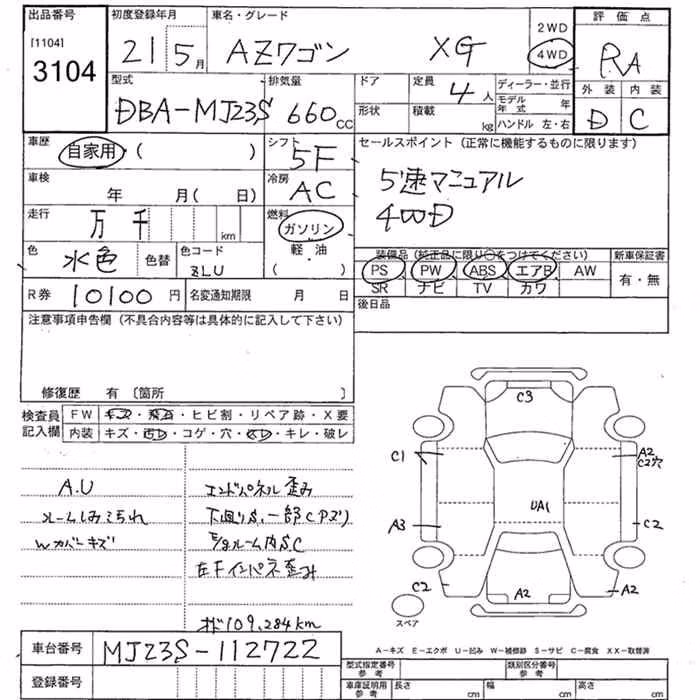 出品番号
[1104]
3104
初度登録年月
21 5月
車名・グレード
AZワゴン XG
2WD
4WD
評価点
RA
外装 内装
D C
型式
DBA-MJ23S
排気量
660cc
ドア
形状
定員
4人
積載
kg
ディーラー・並行
モデル年式 年
ハンドル 左・右
車歴
自家用・( )
シフト
5F
セールスポイント(正常に機能するものに限ります)
5速マニュアル
4WD
車検
年 月( 日)
冷房
AC
走行
万 千 km
燃料
ガソリン
軽・油
( )
色
水色
色替
色コード
ZLU
装備品(純正品に限り○をつけてください)
PS PW ABS エアB AW
SR ナビ TV カワ
新車保証書
有・無
R券
10100円
名変通知期限 月 日
後日品
注意事項申告欄(不具合内容等は具体的に記入して下さい)
修復歴 有〔箇所 〕
検査員記入欄
FW キズ・飛石・ヒビ割・リペア跡・X要
内装 キズ・汚レ・コゲ・穴・・キレ・破レ
A.U
ルームしみ
Wカバーキズ
エンドパネル歪み
下廻りS、一部C
ルーム内S.C
左Fインパネ歪み
109,284km
C3
C1
A2
C2穴
UA1
A3
C2
C2
A2
A2
スペア
A-キズ E-エクボ U-凹み W-補修跡 S-サビ C-腐食 XX-取替済
車台番号
MJ23S-112722
登録番号
型式指定番号
参考
類別区分番号
参考
車庫証明用
参考
長さ cm
幅 cm
高さ cm